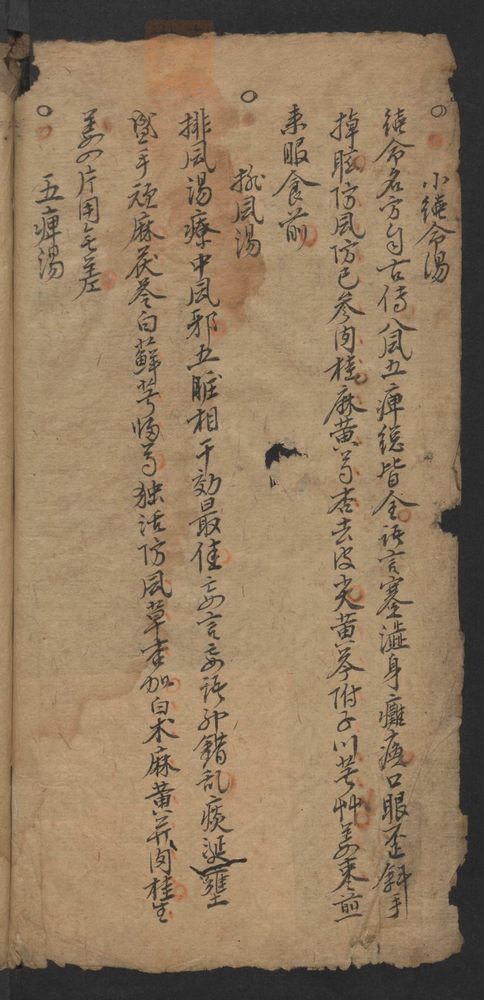 小續命湯
續命名方自古傳八風五痺總皆全語言蹇澁身癱瘓口眼歪斜手
掉眩防風防已參肉桂麻黄芍杏去皮尖黄芩附子川芎艸姜棗煎
来服食前
排風湯
排風湯療中風邪五脏相干効最佳妄言妄語神錯乱痰涎壅
盛手頑麻茯苓白蘚芎歸芍独活防風草杏加白术麻黄并肉桂生
姜四片用無差
五痺湯